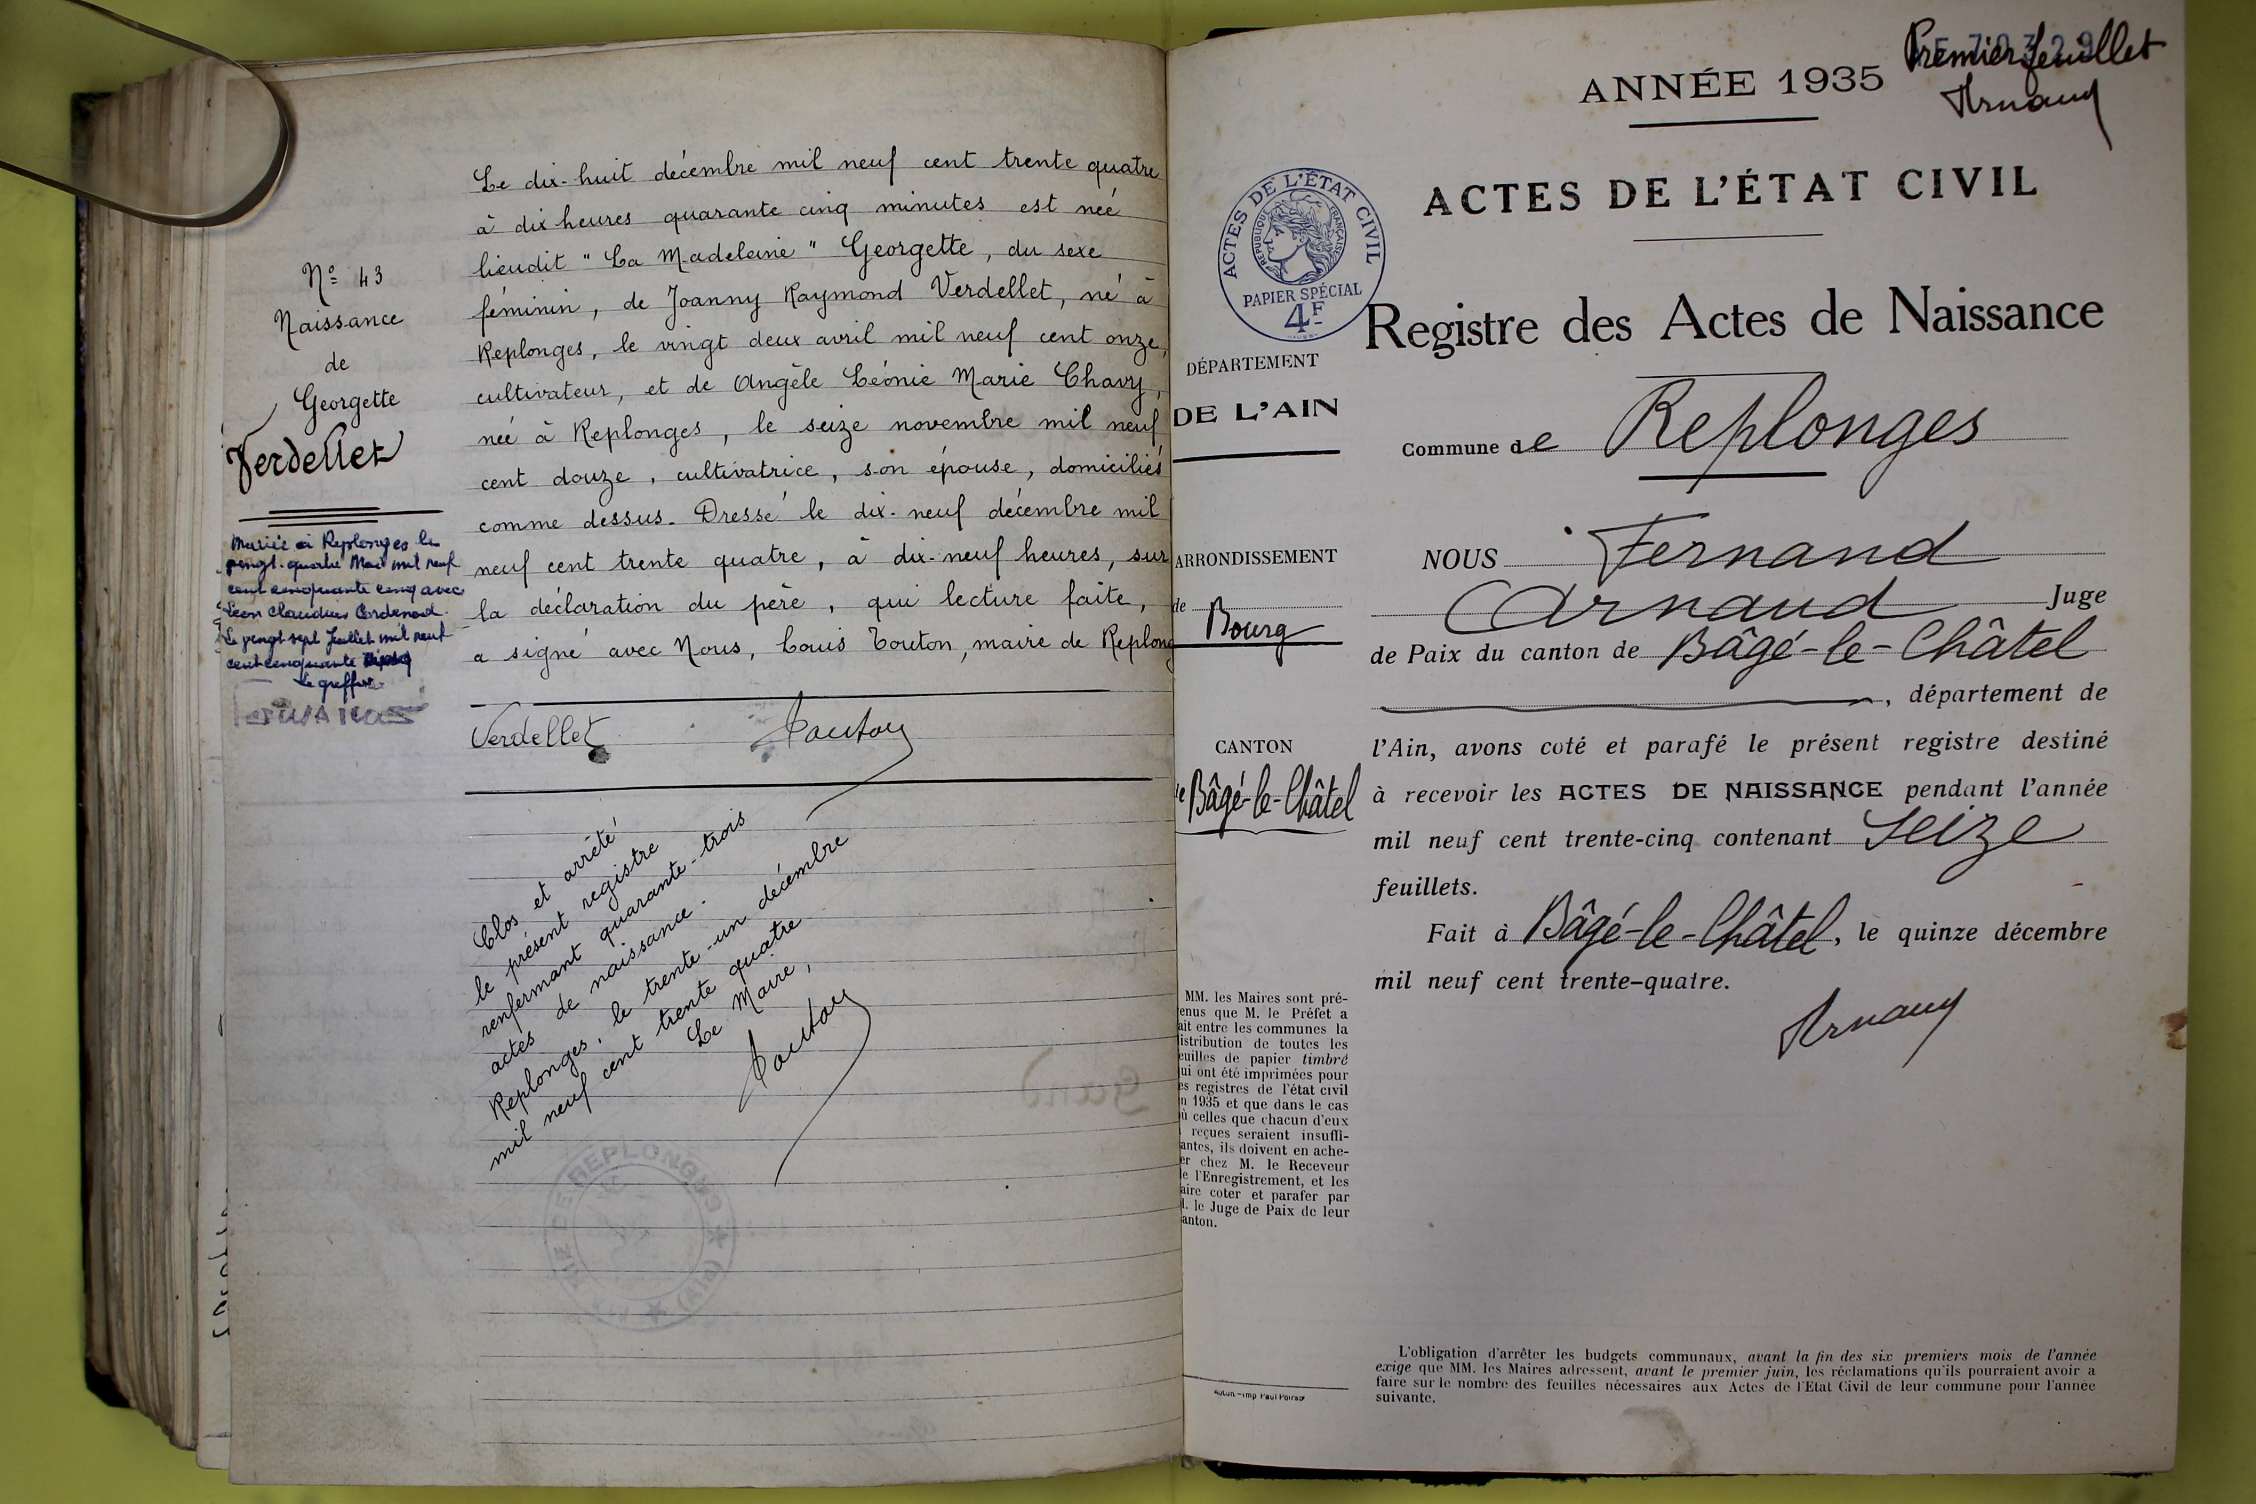 Nº 43
Naissance
de
Georgette
Verdellet
Mariée à Replonges le
vingt-quatre Mai mil neuf
cent cinquante cinq avec
Léon Claudius
Le vingt sept Juillet mil neuf
cent cinquante
Le greffier
Le dix-huit décembre mil neuf cent trente quatre
à dix heures quarante cinq minutes est née
lieudit "La Madeleine" Georgette, du sexe
féminin, de Joanny Raymond Verdellet, né à
Replonges, le vingt deux avril mil neuf cent onze,
cultivateur, et de Angèle Léonie Marie Chavy,
née à Replonges, le seize novembre mil neuf
cent douze, cultivatrice, son épouse, domiciliés
comme dessus. Dressé le dix-neuf décembre mil
neuf cent trente quatre, à dix-neuf heures, sur
la déclaration du père, qui lecture faite,
a signé avec Nous, Louis Touton, maire de Replong
Verdellet Touton
Clos et arrêté
le présent registre
renfermant quarante-trois
actes de naissance.
Replonges, le trente-un décembre
mil neuf cent trente quatre
Le Maire,
Touton
MAIRIE DE REPLONGES
(Ain)
Premier feuillet
Arnaud
ANNÉE 1935
ACTES DE L'ÉTAT CIVIL
ACTES DE L'ÉTAT CIVIL
RÉPUBLIQUE FRANÇAISE
PAPIER SPÉCIAL
4F
Registre des Actes de Naissance
DÉPARTEMENT
DE L'AIN
Commune de Replonges
ARRONDISSEMENT
de
Bourg
NOUS Fernand
Arnaud Juge
de Paix du canton de Bâgé-le-Châtel
, département de
CANTON
de Bâgé-le-Châtel
l'Ain, avons coté et parafé le présent registre destiné
à recevoir les ACTES DE NAISSANCE pendant l'année
mil neuf cent trente-cinq contenant Seize
feuillets.
Fait à Bâgé-le-Châtel, le quinze décembre
mil neuf cent trente-quatre.
Arnaud
MM. les Maires sont pré-
enus que M. le Préfet a
ait entre les communes la
istribution de toutes les
euilles de papier timbré
ui ont été imprimées pour
es registres de l'état civil
n 1935 et que dans le cas
ù celles que chacun d'eux
reçues seraient insuffi-
antes, ils doivent en ache-
er chez M. le Receveur
e l'Enregistrement, et les
aire coter et parafer par
. le Juge de Paix de leur
anton.
Autun - Imp Paul Poirson
L'obligation d'arrêter les budgets communaux, avant la fin des six premiers mois de l'année
exige que MM. les Maires adressent, avant le premier juin, les réclamations qu'ils pourraient avoir a
faire sur le nombre des feuilles nécessaires aux Actes de l'Etat Civil de leur commune pour l'année
suivante.